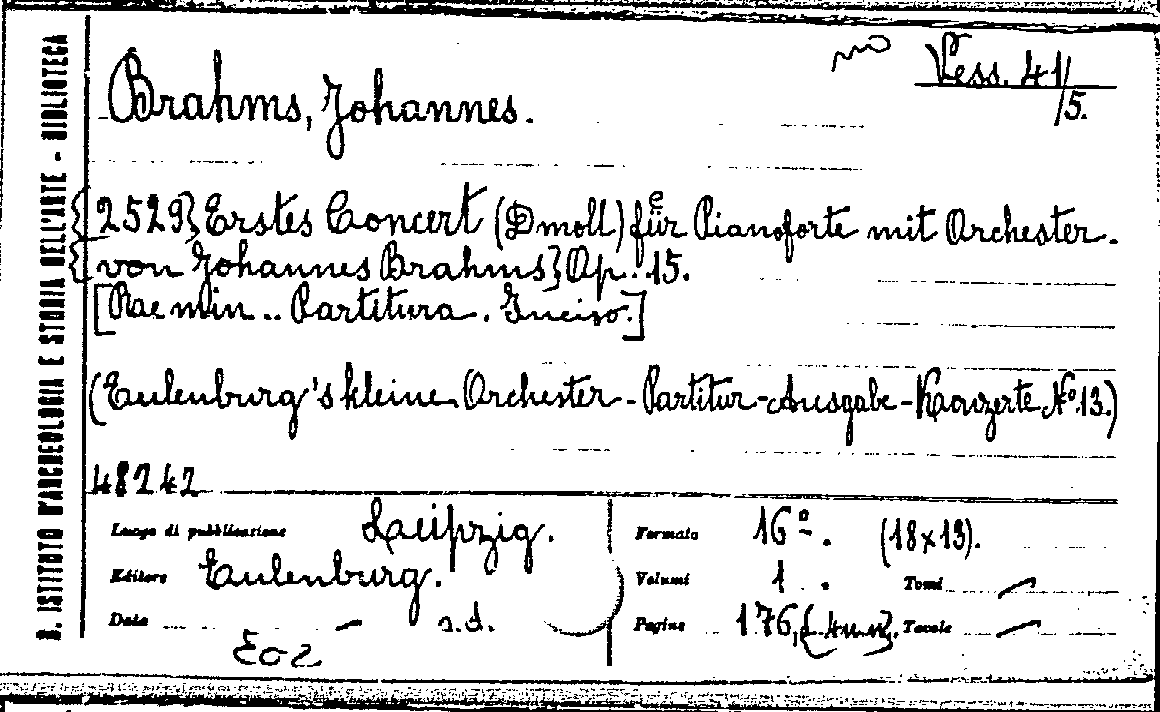 R. ISTITUTO D'ARCHEOLOGIA E STORIA DELL'ARTE - BIBLIOTECA
Vess. 41/5.
Brahms, Johannes.
{2529} Erstes Concert (D moll) für Pianoforte mit Orchester.
{von Johannes Brahms} Op. 15.
[Rae min.. Partitura. Inciso.]
(Eulenburg's kleine Orchester-Partitur-Ausgabe-Konzerte No. 13.)
48242
Luogo di pubblicazione Leipzig. Formato 16º. (18x13).
Editore Eulenburg. Volumi 1. Tomi —
Data — s.d. Pagine 176, Tavole —